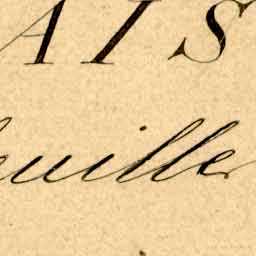 AIS
euille